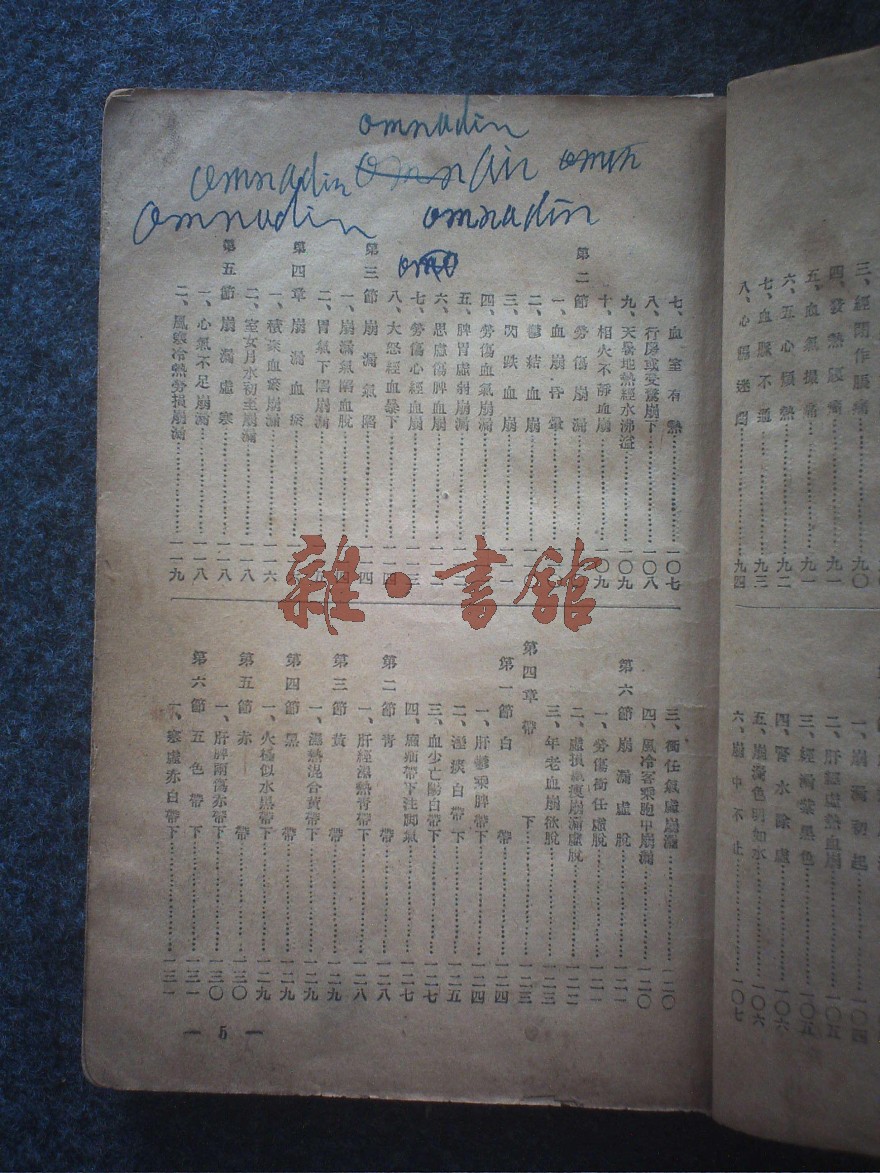 omnadin
omnadin omnain omnh
omnadin omnadin
omo
七、血室有熱……一〇七
八、行房或受驚崩下……一〇八
九、天暑地熱經水沸溢……一〇九
十、相火不靜血崩……一〇九
第二節 勞傷崩漏
一、血崩昏暈
二、鬱結血崩
三、閃跌血崩
四、勞傷血氣崩漏
五、脾胃虛弱崩漏
六、思慮傷脾血崩
七、勞傷心經血崩
八、大怒經血暴下
第三節 崩漏氣陷
一、崩漏氣陷血脫
二、胃氣下陷崩漏
第四章 崩漏血瘀
一、積瘀血崩漏……一一六
二、室女月水初至崩漏……一一八
第五節 崩漏虛寒……一一八
一、心氣不足崩漏……一一八
二、風寒冷熱勞損崩漏……一一九
雜·書館
三、衝任氣虛崩漏……一二〇
四、風冷客乘胞中崩漏……一二〇
第六節 崩漏虛脫……一二一
一、勞傷衝任虛脫……一二一
二、虛損氣瘦崩漏虛脫……一二二
三、年老血崩欲脫……一二三
第四章 帶下……一二三
第一節 白帶……一二四
一、肝鬱乘脾帶下……一二四
二、濕痰白帶下……一二五
三、血少亡陽白帶下……一二七
四、癲疝帶下注腥氣……一二七
第二節 青帶……一二八
一、肝經濕熱青帶下……一二八
第三節 黃帶……一二九
一、濕熱混合黃帶下……一二九
第四節 黑帶……一二九
一、火極似水黑帶下……一二九
第五節 赤帶……一三〇
一、肝脾兩傷赤帶下……一三〇
第六節 五色帶下……一三一
一、寒虛赤白帶下……一三一
— 5 —
三、經閉作脹痛……九〇
四、發熱腹痛……九一
五、血氣撮痛……九一
六、五心煩熱……九二
七、血脈不通……九三
八、心腦迷悶……九四
一、崩漏初起……一〇四
二、肝經虛熱血崩……一〇五
三、經濁紫黑色……一〇五
四、腎水陰虛……一〇六
五、崩漏色明如水……一〇六
六、崩中不止……一〇七